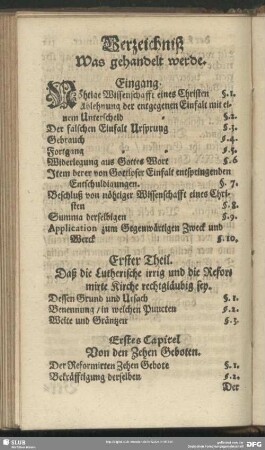 Verzeichniß
Was gehandelt werde.
Eingang.
Nöhtiae Wissenschafft eines Christen §.1.
Ablehnung der entgegenen Einfalt mit ei-
nem Unterscheid §.2.
Der falschen Einfalt Ursprung §.3.
Gebrauch §.4.
Fortgang §.5.
Widerlegung aus Gottes Wort §.6
Item derer von Gottloser Einfalt entspringenden
Entschuldigungen. §.7.
Beschluß von nöhtiger Wissenschafft eines Chri-
sten §.8.
Summa derselbigen §.9.
Application zum Gegenwärtigen Zweck und
Werck §.10.
Erster Theil.
Daß die Lutherische irrig und die Refor-
mirte Kirche rechtgläubig sey.
Dessen Grund und Ursach §.1.
Benennung / in welchen Puncten §.2.
Weite und Gräntzen §.3.
Erstes Capitel
Von den Zehen Geboten.
Der Reformirten Zehen Gebote §.1.
Bekräfftigung derselben §.2.
Der
SLUB
DFG